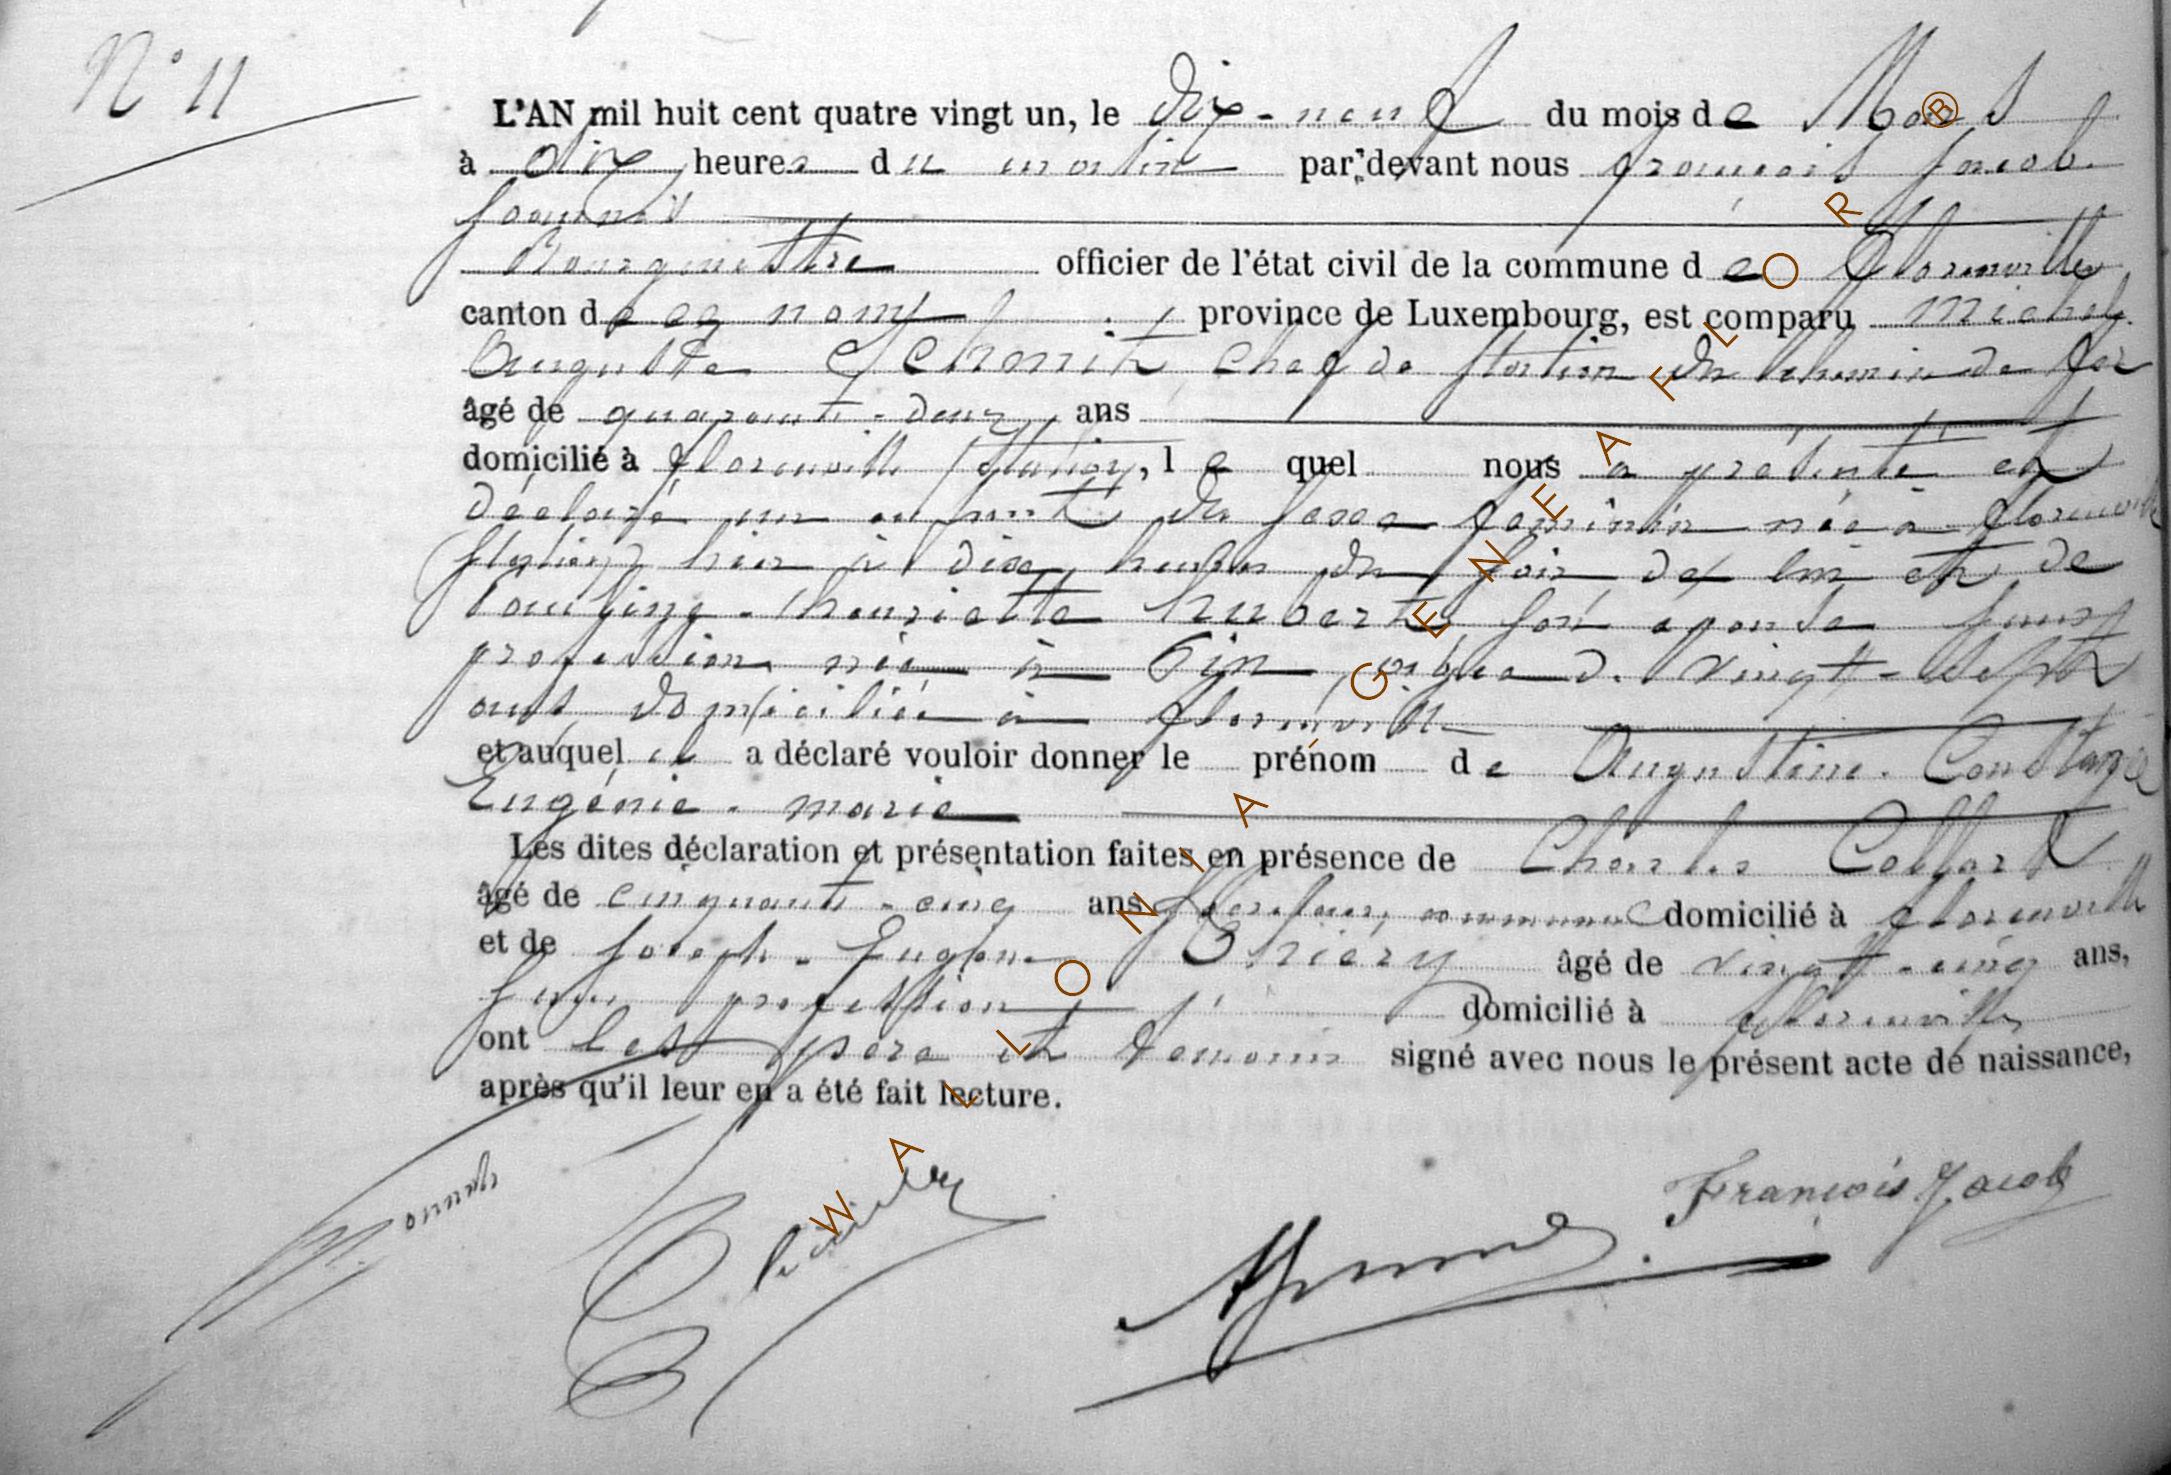 N° 11
L'AN mil huit cent quatre vingt un, le dix-neuf du mois de Mars
à dix heures du matin par devant nous françois Jacob
Bourgmestre officier de l'état civil de la commune de Florenville
canton de ce nom province de Luxembourg, est comparu Michel
Auguste Schmit, chef de station du chemin de fer
âgé de quarante-deux ans
domicilié à florenville (station), le quel nous a présenté et
déclaré un enfant du sexe féminin née à florenville
(station) hier à dix heures du soir de lui et de
Pauline-henriette hubert, son épouse sans
profession née à Gin âgée de vingt-sept
ans domiciliée à florenville
et auquel il a déclaré vouloir donner le prénom de Augustine. Constance
Eugénie-marie
Les dites déclaration et présentation faites en présence de Charles Collard
âgé de cinquante-cinq ans, communal domicilié à florenville
et de Joseph-Eugène Thiéry âgé de vingt-cinq ans,
sans profession domicilié à florenville
ont les père et témoins signé avec nous le présent acte de naissance,
après qu'il leur en a été fait lecture.
François Jacob
WALLONIA GENEA FLOR ®